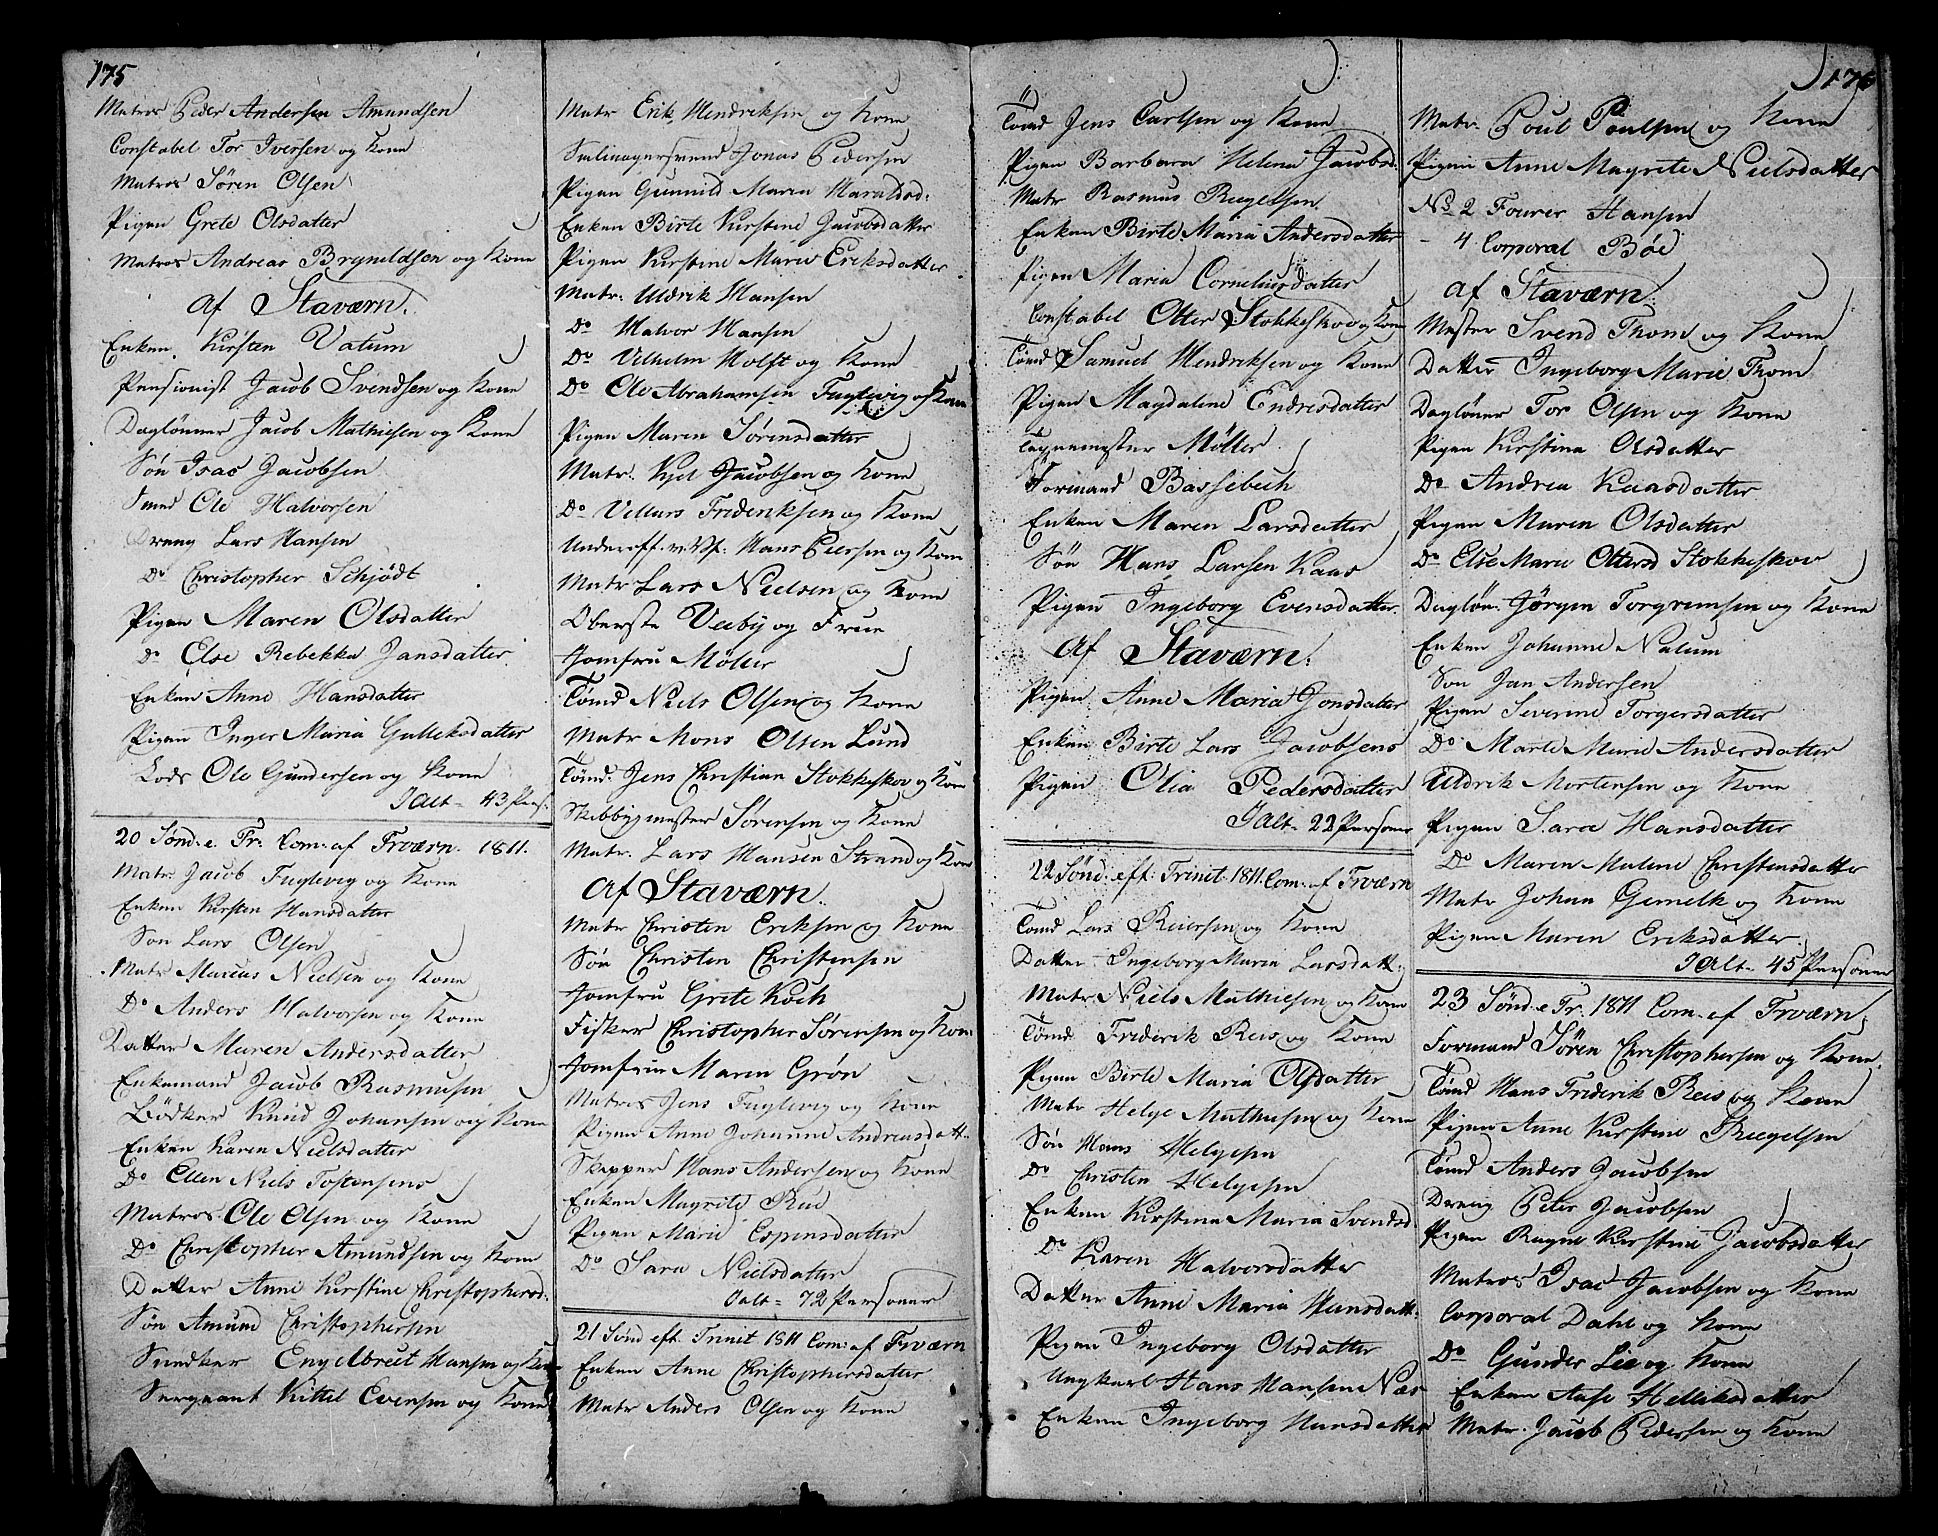 175
Matros Peder Andersen Amundsen
Constabel Tor Iversen og Kone
Matros Søren Olsen
Pigen Grete Olsdatter
Matros Andreas Bryneldsen og Kone
Af Staværn.
Enken Kirsten Vatum
Pensionist Jacob Svendsen og Kone
Daglønner Jacob Mathiesen og Kone
Søn Isac Jacobsen
Smed Ole Halvorsen
Dreng Lars Hansen
Do Christopher Schjødt
Pigen Maren Olsdatter
Do Else Rebekka Jansdatter
Enken Anne Hansdatter
Pigen Inger Maria Gulleksdatter
Lods Ole Gundersen og Kone
Ialt = 43 Pers:
20 Sønd. e. Tr: Com: af Frværn. 1811.
Matr. Jacob Fuglevig og Kone
Enken Kirsten Hansdatter
Søn Lars Olsen
Matr Marcus Nielsen og Kone
Do Anders Halvorsen og Kone
Datter Maren Andersdatter
Enkemand Jacob Rasmusen
Bødker Knud Johansen og Kone
Enken Karen Nielsdatter
Do Ellen Niels Tostensens
Matros Ole Olsen og Kone
Do Christopher Amundsen og Kone
Datter Anne Kirstine Christophersd.
Søn Amund Christophersen
Snedker Engelbreit Hansen og Kone
Sergeant Kittel Evensen og Kone
Matr Erik Hendriksen og Kone
Seilmagersvend Jonas Pedersen
Pigen Gunnild Maria Haraldsd:
Enken Birte Kirstine Jacobsdatter
Pigen Kirstine Marie Eriksdatter
Matr: Uldrik Hansen
Do Halvor Hansen
Do Vilhelm Holst og Kone
Do Ole Abrahamsen Fuglevig og Kone
Pigen Maren Sørensdatter
Matr. Kjel Jacobsen og Kone
Do Villars Frideriksen og Kone
Underoff. v. Vf: Hans Persen og Kone
Matr Lars Nielsen og Kone
Oberste Veiby og Frue
Jomfru Møller
Tømd Niels Olsen og Kone
Matr Mons Olsen Lund
Tømd. Jens Christian Stokkeskov og Kone
Skibbygmester Sørensen og Kone
Matr. Lars Hansen Strand og Kone
Af Staværn.
Matr Christen Eriksen og Kone
Søn Christen Christensen
Jomfru Grete Koch
Fisker Christopher Sørensen og Kone
Jomfrue Maren Grøn
Matros Jens Fuglevig og Kone
Pigen Anne Johanne Andreasdatt.
Skipper Hans Andersen og Kone
Enken Magrete Rud
Pigen Marie Espensdatter
Do Sara Nielsdatter
Ialt = 72 Personer
21 Sønd eft. Trinit 1811 Com: af Frværn
Enken Anne Christophersdatter
Matr Anders Olsen og Kone
176
Tømd Jens Carlsen og Kone
Pigen Barbara Helena Jacobsd.
Matr Rasmus Regelsen
Enken Birte Maria Andersdatter
Pigen Maria Corneliusdatter
Constabel Otter Stokkeskov og Kone
Tømd Samuel Hendriksen og Kone
Pigen Magdalene Endresdatter
Tegnemester Møller
Formand Bassebech
Enken Maren Larsdatter
Søn Hans Larsen Kaas
Pigen Ingeborg Evensdatter
Af Staværn.
Pigen Anne Maria Jonsdatter
Enken Birte Lars Jacobsens
Pigen Olia Pedersdatter
Ialt = 22 Personer
22 Sønd. eft: Trinit. 1811 Com: af Frværn
Tømd Lars Reiersen og Kone
Datter Ingeborg Maria Larsdatt:
Matr Niels Mathiesen og Kone
Tømd Friderik Reis og Kone
Pigen Birte Maria Olsdatter
Matr Helge Mathiesen og Kone
Søn Hans Helgesen
Do Christen Helgesen
Enken Kirstina Maria Svendsd.
Do Karen Halvorsdatter
Datter Anne Maria Hansdatt:
Pigen Ingeborg Olsdatter
Ungkarl Hans Hansen Næs
Enken Ingeborg Hansdatter
Matr. Poul Poulsen og Kone
Pigen Anne Magrete Nielsdatter
No 2 Fourer Hansen
- 4 Corporal Böe
Af Staværn.
Mester Svend Thom og Kone
Datter Ingeborg Marie Thom
Dagløner Tor Olsen og Kone
Pigen Kirstina Olsdatter
Do Andrea Kaasdatter
Pigen Maren Olsdatter
Do Else Marie Ottersd Stokkeskov
Dagløn. Jørgen Torgrimsen og Kone
Enken Johanne Natum
Søn Jan Andersen
Pigen Severine Torgersdatter
Do Marte Marie Andersdatter
Uldrik Mortensen og Kone
Pigen Sara Hansdatter
Do Maren Malene Christensdatter
Matr Johan Gemelk og Kone
Pigen Maren Eriksdatter
Ialt = 45 Personer
23 Sønd. e Tr. 1811 Com. af Frværn.
Formand Søren Christophersen og Kone.
Tømd Hans Friderik Reis og Kone
Pigen Anne Kirstine Regelsen
Tømd Anders Jacobsen
Dreng Peter Jacobsen
Pigen Ragne Kirstine Jacobsdatter
Matros Isac Jacobsen og Kone
Corporal Dahl og Kone
Do Gunder Lie og Kone
Enken Aase Helliksdatter
Matr. Jacob Pedersen og Kone